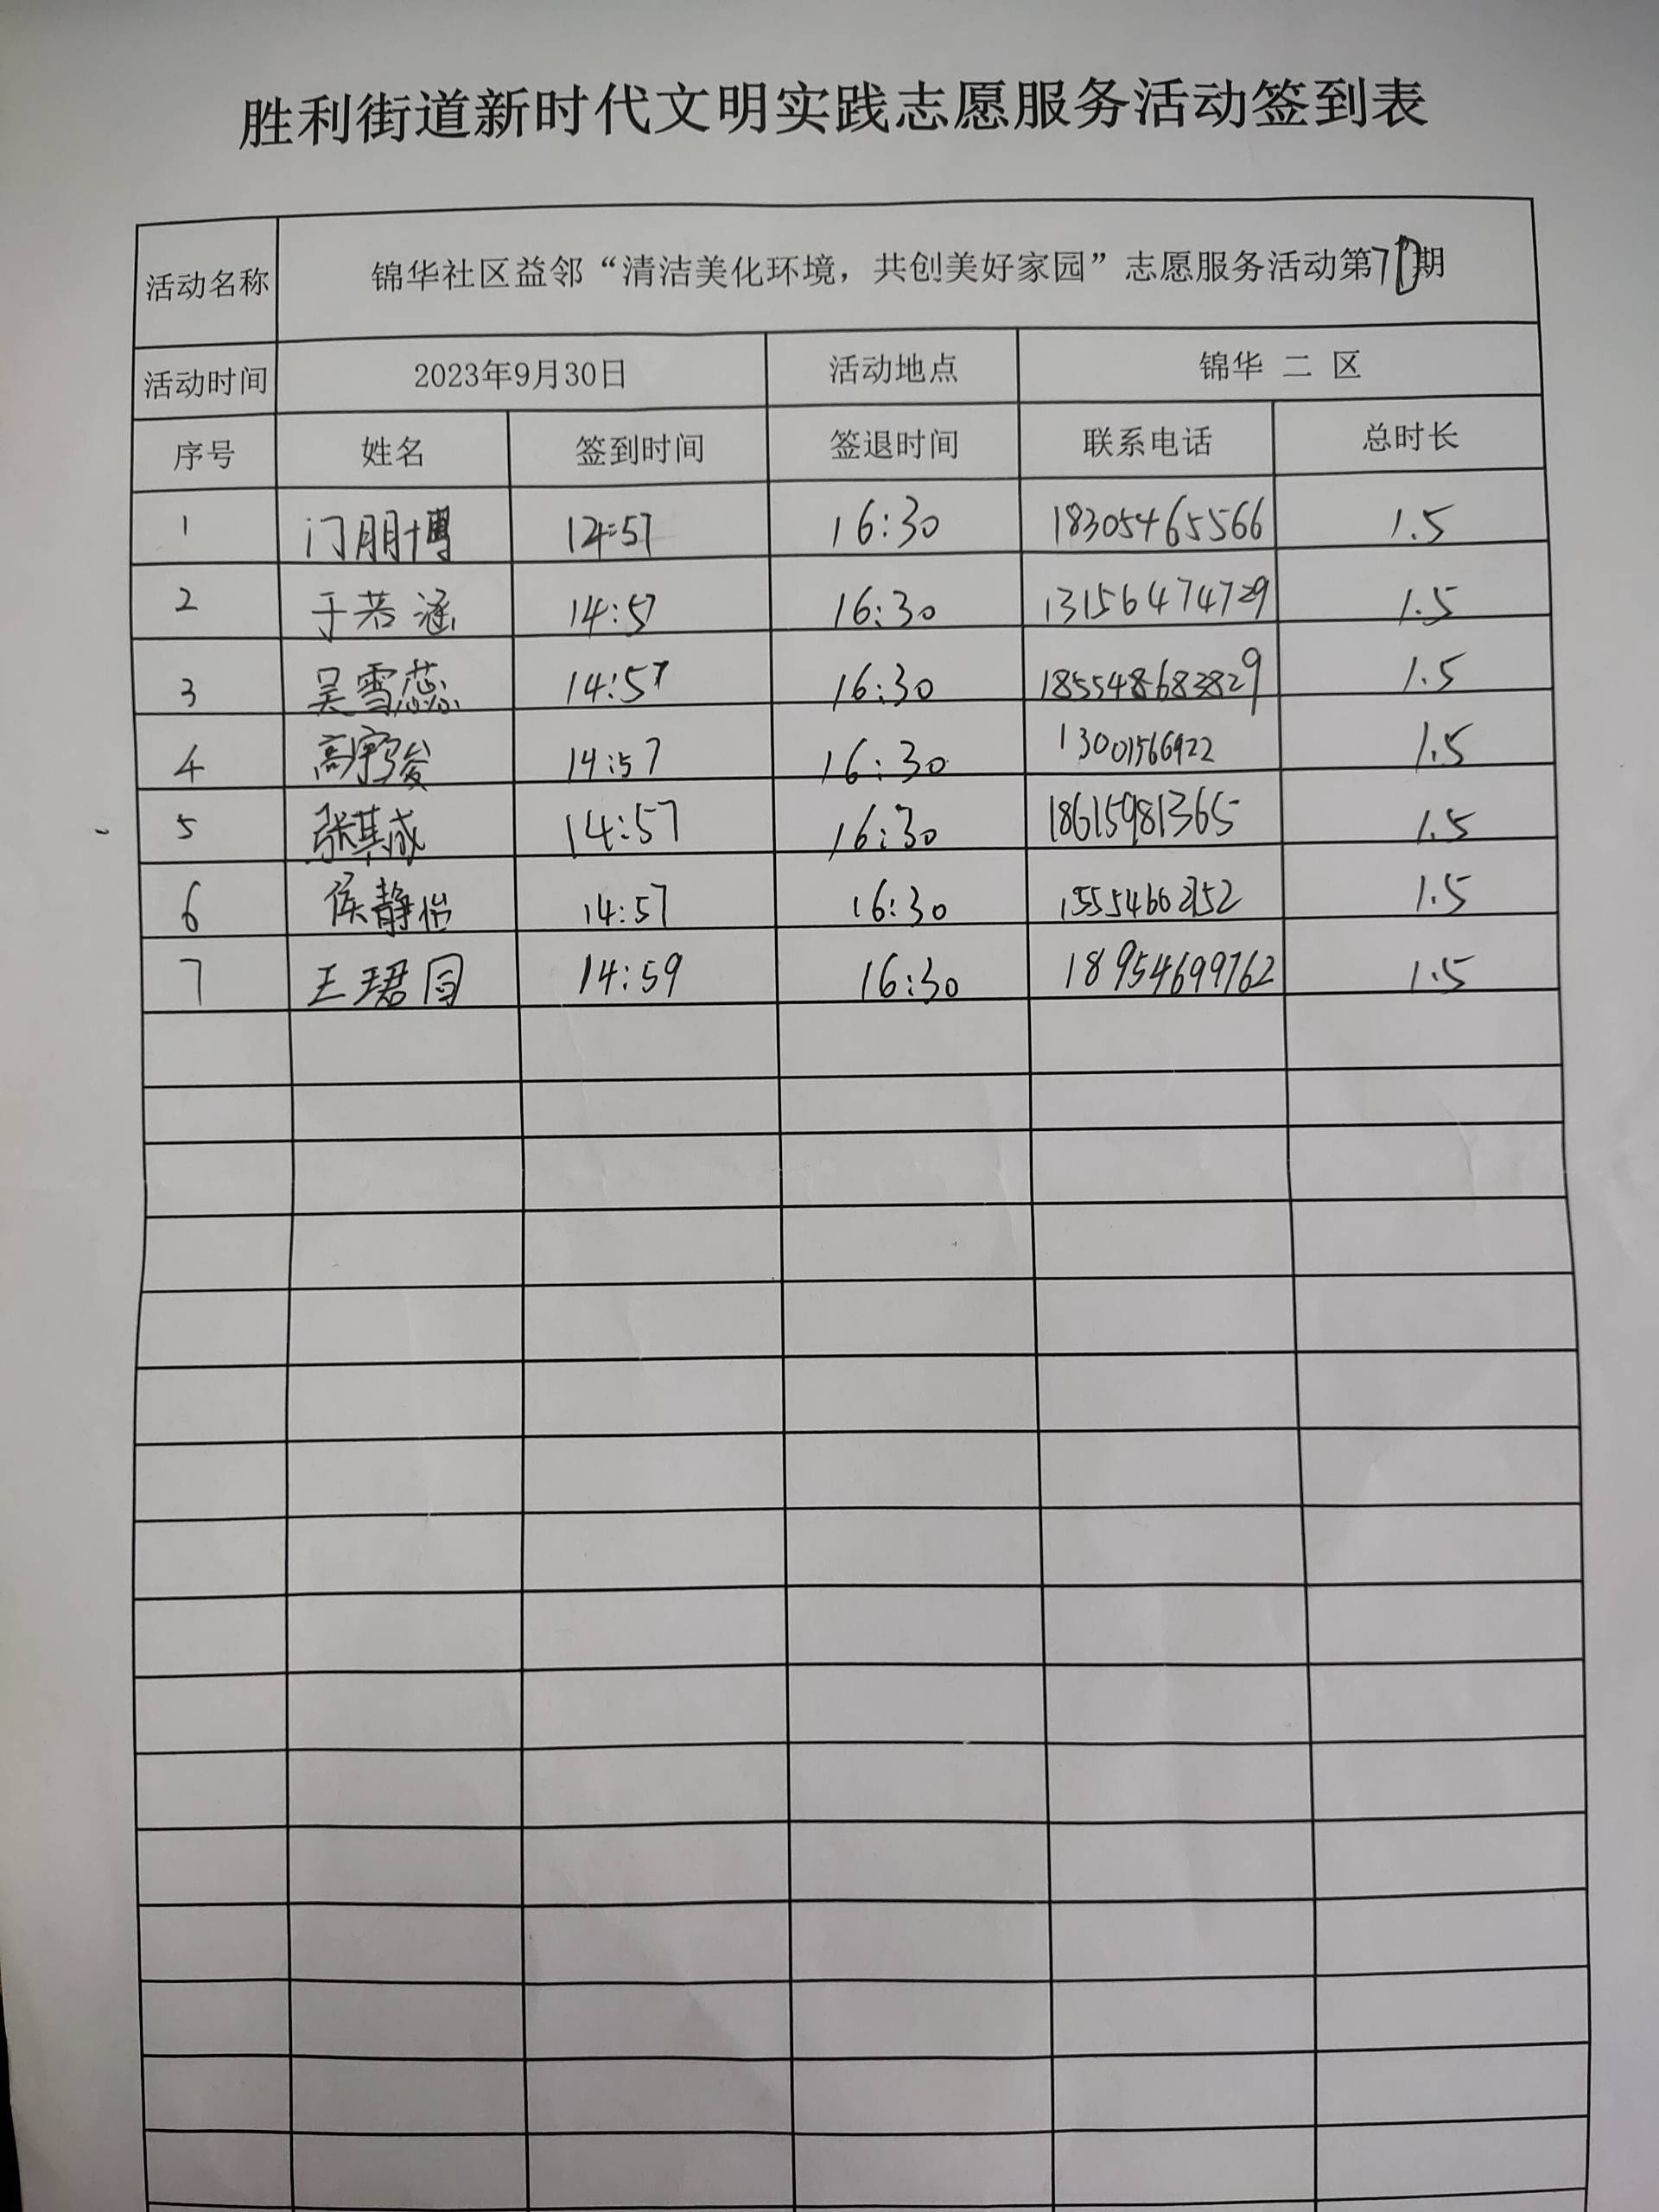 胜利街道新时代文明实践志愿服务活动签到表
活动名称 锦华社区益邻“清洁美化环境，共创美好家园”志愿服务活动第70期
活动时间 2023年9月30日 活动地点 锦华 二 区
序号 姓名 签到时间 签退时间 联系电话 总时长
1 门朋博 14:57 16:30 18305465566 1.5
2 于若涵 14:57 16:30 13156474729 1.5
3 吴雪蕊 14:57 16:30 1.5
4 高宇俊 14:57 16:30 13001566922 1.5
5 张其成 14:57 16:30 18615981365 1.5
6 侯静怡 14:57 16:30 1.5
7 王珺 14:59 16:30 18954699762 1.5